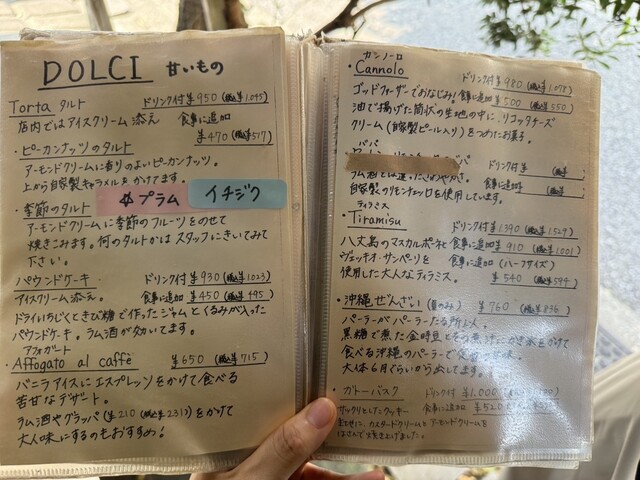 DOLCI 甘いもの
Torta タルト ドリンク付¥950(税込¥1.045)
店内ではアイスクリーム添え 食事に追加
¥470(税込¥517)
・ピーカンナッツのタルト
アーモンドクリームに香りのよいピーカンナッツ。
上から自家製キャラメルをかけてます。
プラム イチジク
・季節のタルト
アーモンドクリームに季節のフルーツをのせて
焼きこみます。何のタルトかはスタッフにきいてみて
下さい。
パウンドケーキ ドリンク付¥930(税込1.023)
アイスクリーム添え。 食事に追加¥450(税込¥495)
ドライいちじくときび糖で作ったジャムとくるみが入った
パウンドケーキ。ラム酒が効いてます。
アフォガート
・Affogato al caffè ¥650(税込¥715)
バニラアイスにエスプレッソをかけて食べる
苦甘なデザート。
ラム酒やグラッパ(¥210(税込¥231))をかけて
大人味にするのもおすすめ!
カンノーロ
・Cannolo ドリンク付¥980(税込¥1.078)
ゴッドファーザーでおなじみ! 食事に追加¥500(税込¥550)
油で揚げた筒状の生地の中に、リコッタチーズ
クリーム(自家製ピール入り)をつめたお菓子。
ババ
ドリンク付¥ (税込¥
ラム酒とは違った
食事に追加¥ (税込¥
自家製のリモンチェッロを使用しています。
ティラミス
・Tiramisu ドリンク付¥1390(税込¥1.529)
八丈島のマスカルポーネと 食事に追加¥910(税込¥1.001)
ヴェッキオ・サンペーリを 食事に追加(ハーフサイズ)
使用した大人なティラミス。 ¥540(税込¥594)
・沖縄ぜんざい(夏のみ) ¥760(税込¥836)
パーラーがパーラーたる所以。
黒糖で煮た金時豆と
食べる沖縄のパーラーで
大体6月くらいから出してます。
・ガトーバスク ドリンク付¥1.000(税込
サックリとしたクッキー 食事に追加¥520(税込
生地に、カスタードクリームとアーモンドクリームを
はさんで焼き上げました。